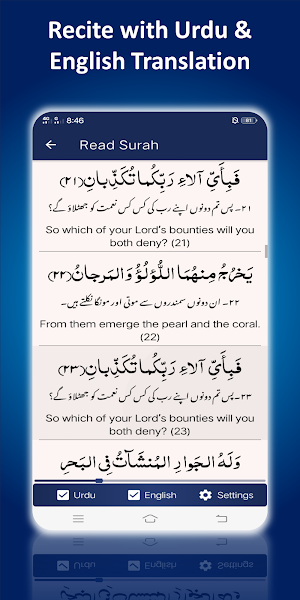 Recite with Urdu &
English Translation
8:46
Read Surah
فَبِأَيِّ آلَاءِ رَبِّكُمَا تُكَذِّبَانِ(۲۱)
۲۱۔ پس تم دونوں اپنے رب کی کس کس نعمت کو جھٹلاؤ گے؟
So which of your Lord's bounties will you
both deny? (21)
يَخْرُجُ مِنْهُمَا اللُّؤْلُؤُ وَالْمَرْجَانُ(۲۲)
۲۲۔ ان دونوں سمندروں سے موتی اور مونگا نکلتے ہیں۔
From them emerge the pearl and the coral.
(22)
فَبِأَيِّ آلَاءِ رَبِّكُمَا تُكَذِّبَانِ(۲۳)
۲۳۔ پس تم دونوں اپنے رب کی کس کس نعمت کو جھٹلاؤ گے؟
So which of your Lord's bounties will you
both deny? (23)
وَلَهُ الْجَوَارِ الْمُنْشَآتُ فِي الْبَحْرِ
Urdu English Settings